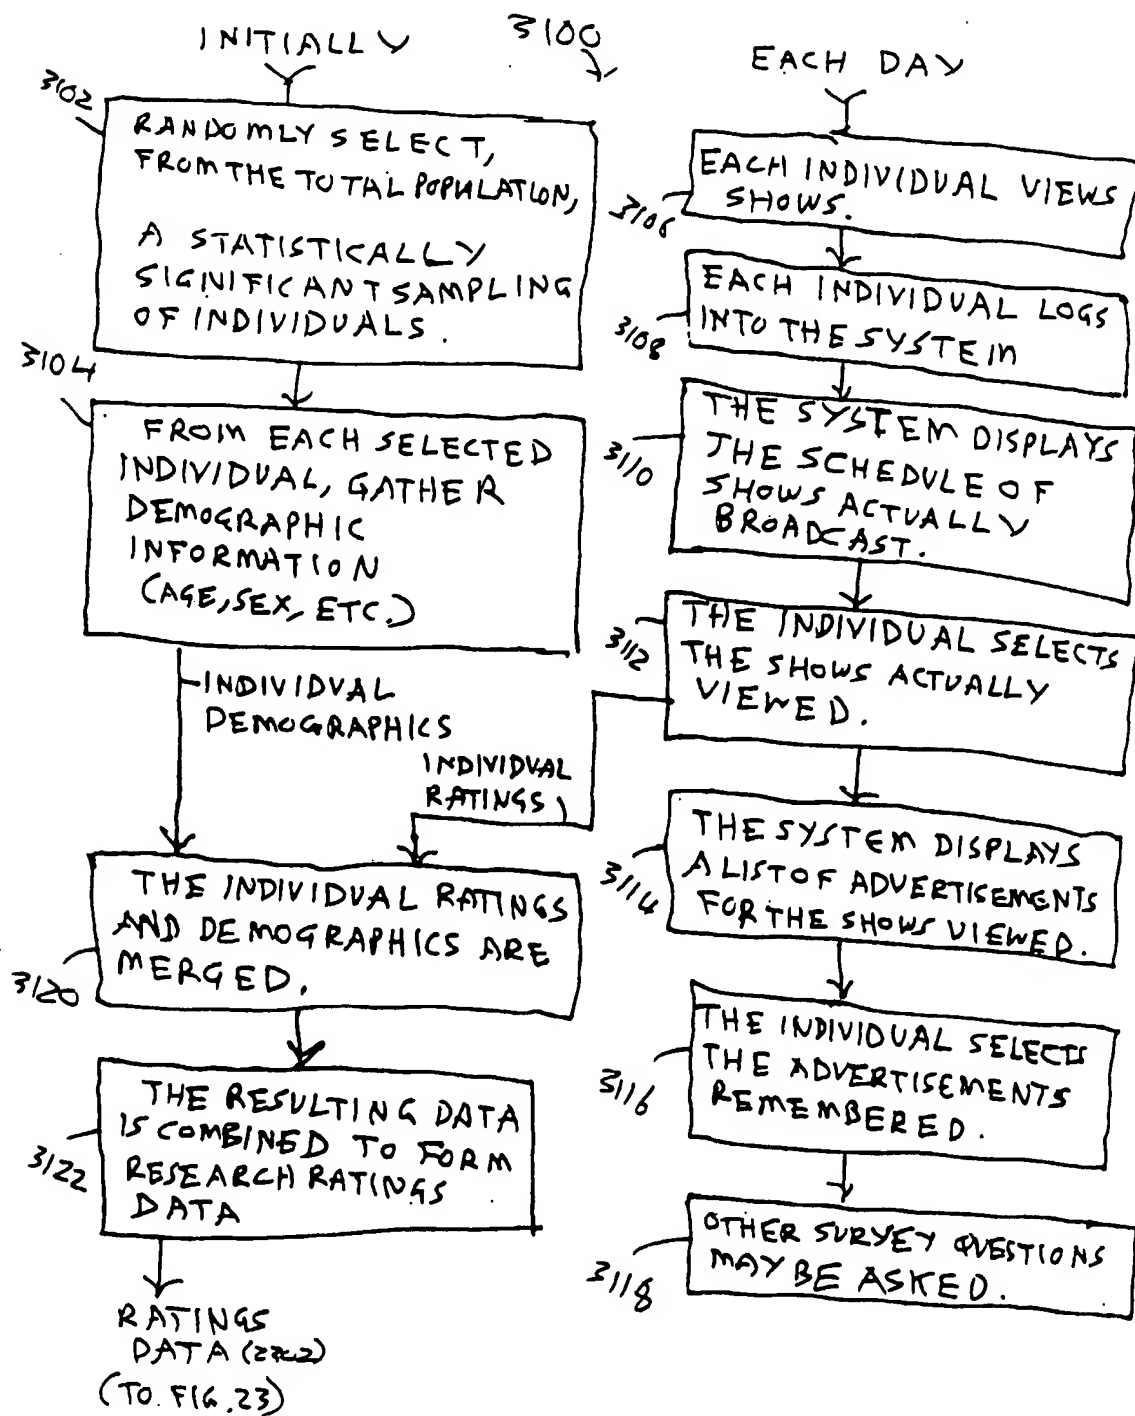 INITIALLY
3100
3102
RANDOMLY SELECT,
FROM THE TOTAL POPULATION,
A STATISTICALLY
SIGNIFICANT SAMPLING
OF INDIVIDUALS.
3104
FROM EACH SELECTED
INDIVIDUAL, GATHER
DEMOGRAPHIC
INFORMATION
(AGE, SEX, ETC.)
INDIVIDUAL
DEMOGRAPHICS
INDIVIDUAL
RATINGS
THE INDIVIDUAL RATINGS
AND DEMOGRAPHICS ARE
MERGED.
3120
THE RESULTING DATA
IS COMBINED TO FORM
RESEARCH RATINGS
DATA
3122
RATINGS
DATA
(TO FIG. 23)
EACH DAY
EACH INDIVIDUAL VIEWS
SHOWS.
3106
EACH INDIVIDUAL LOGS
INTO THE SYSTEM
3108
THE SYSTEM DISPLAYS
THE SCHEDULE OF
SHOWS ACTUALLY
BROADCAST.
3110
THE INDIVIDUAL SELECTS
THE SHOWS ACTUALLY
VIEWED.
3112
THE SYSTEM DISPLAYS
A LIST OF ADVERTISEMENTS
FOR THE SHOWS VIEWED.
3114
THE INDIVIDUAL SELECTS
THE ADVERTISEMENTS
REMEMBERED.
3116
OTHER SURVEY QUESTIONS
MAY BE ASKED.
3118